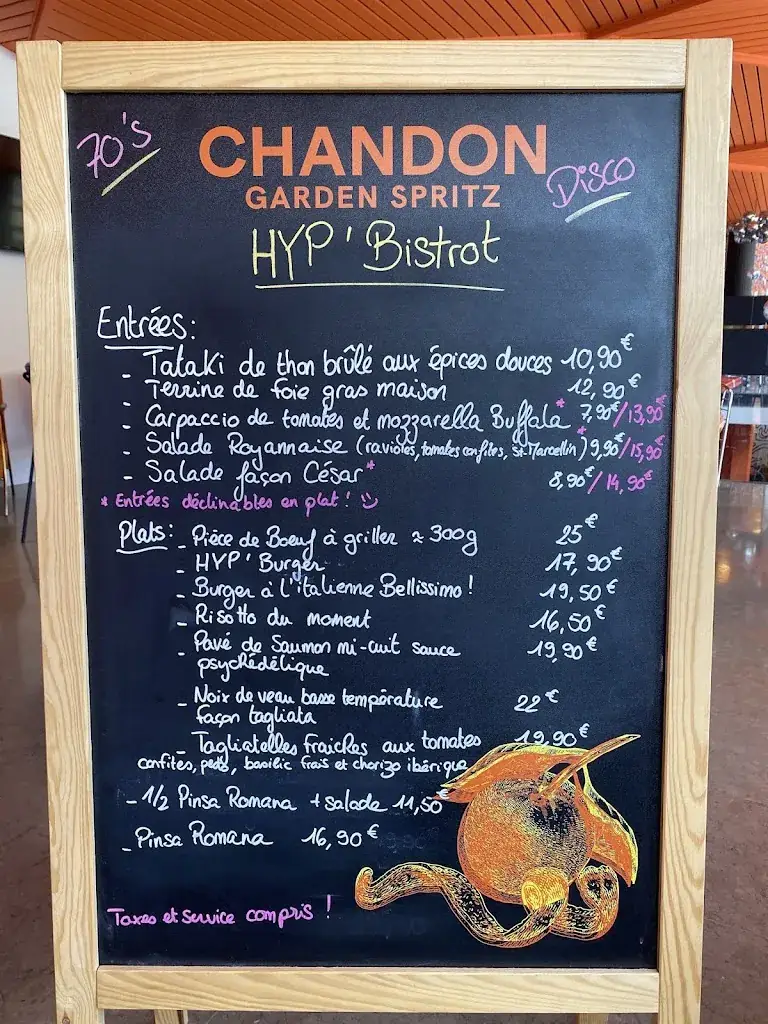 70's
CHANDON
GARDEN SPRITZ
Disco
HYP' Bistrot
Entrées:
- Tataki de thon brûlé aux épices douces 10,90€
- Terrine de foie gras maison 12,90€
- Carpaccio de tomates et mozzarella Buffala* 7,90€/13,90€
- Salade Royannaise (ravioles, tomates confites, St-Marcellin)* 9,90€/15,90€
- Salade façon César* 8,90€/14,90€
* Entrées déclinables en plat !
Plats:
- Pièce de Boeuf à griller ≈ 300g 25€
- HYP' Burger 17,90€
- Burger à l'italienne Bellissimo ! 19,50€
- Risotto du moment 16,50€
- Pavé de Saumon mi-cuit sauce 19,90€
psychédélique
- Noix de veau basse température 22€
façon tagliata
- Tagliatelles fraiches aux tomates 19,90€
confites, pesto, basilic frais et chorizo ibérique
- 1/2 Pinsa Romana + salade 11,50€
- Pinsa Romana 16,90€
Taxes et service compris !